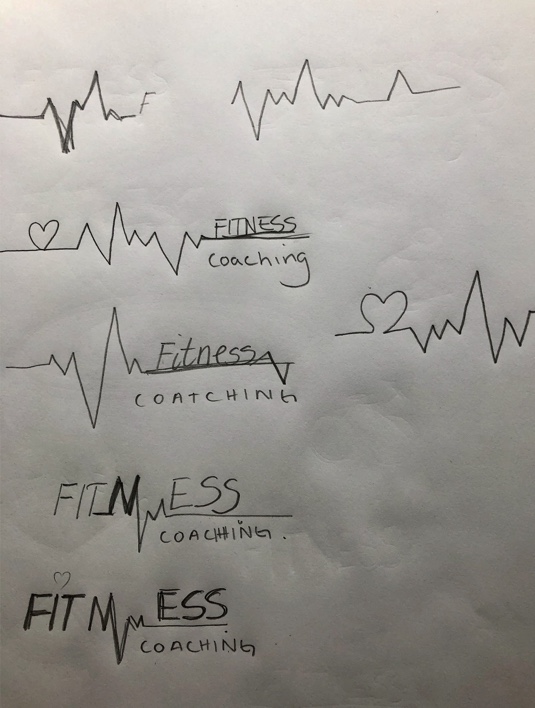 F
FITNESS
coaching
Fitness
COATCHING
FITNESS
COACHING.
FITNESS
COACHING